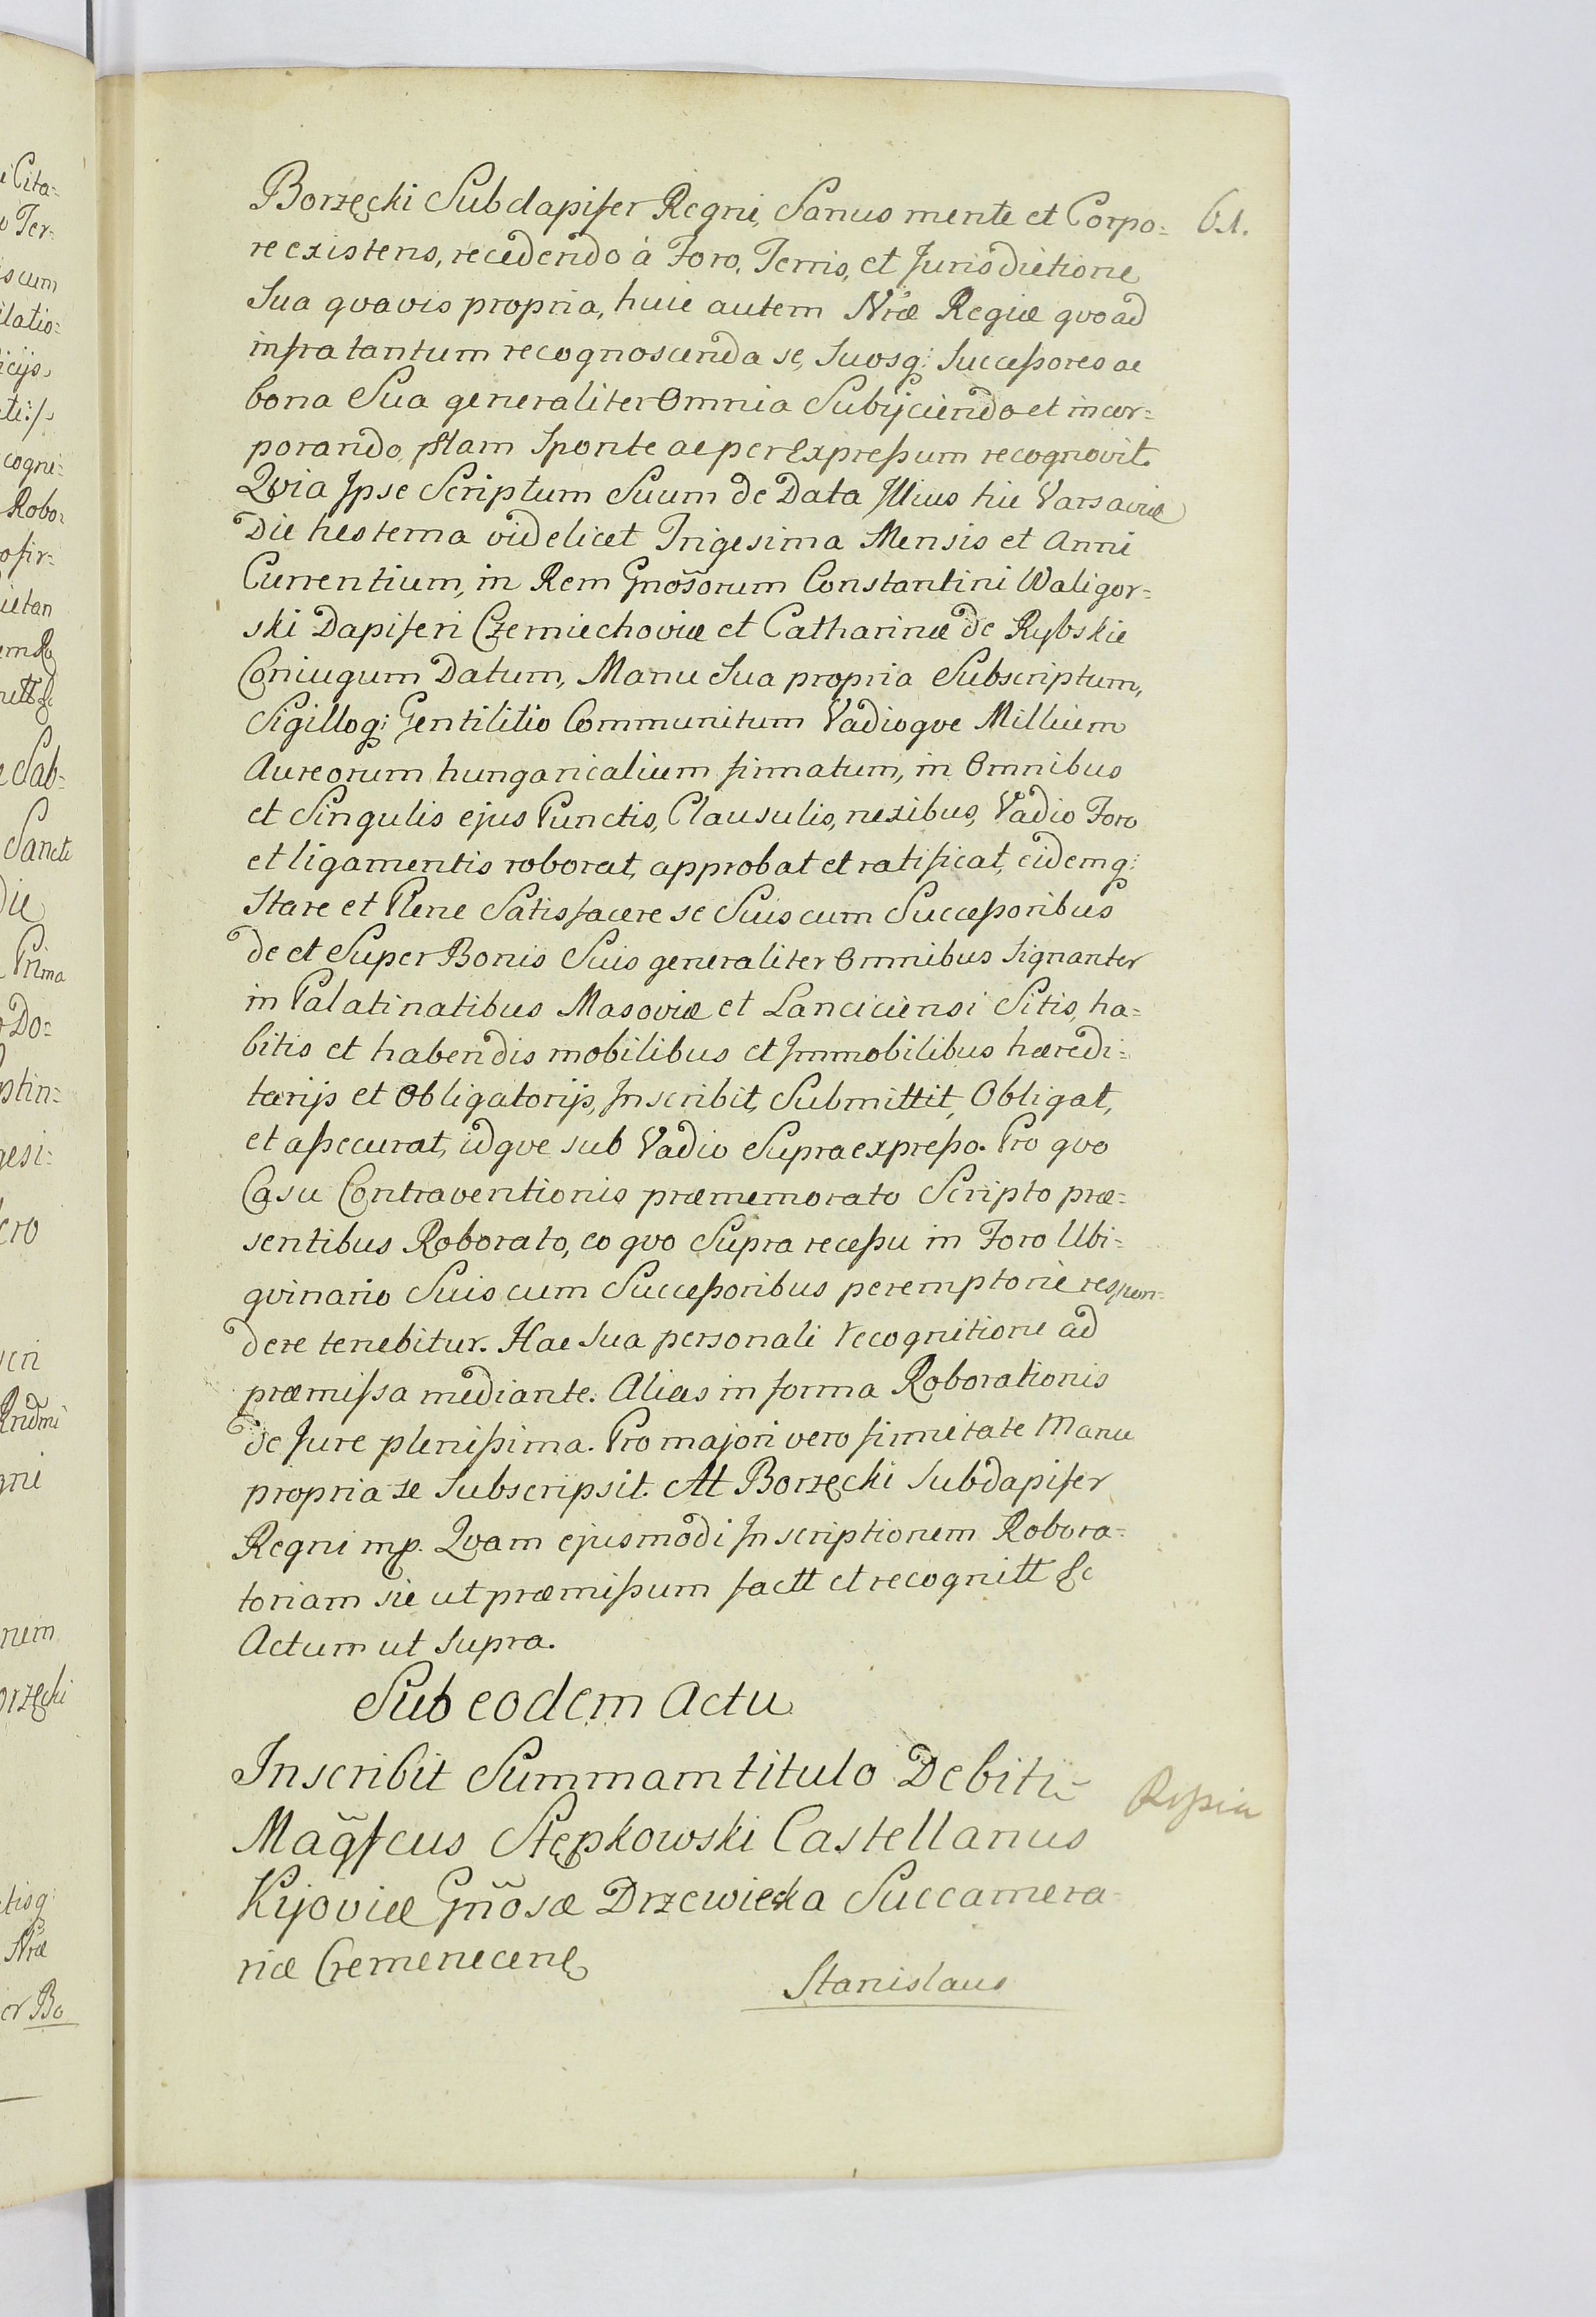 61.
Borzęcki Subdapifer Regni, Sanus mente et Corpo=
re existens, recedendo à Foro, Terris, et Jurisdictione
Sua qvavis propria, huic autem Nr̃æ Regiæ qvoad
infra tantum recognoscenda se, Suosq; Succeßores ac
bona Sua generaliter Omnia Subijciendo et incor=
porando, pltam Sponte ac per Expreßum recognovit.
Qvia Ipse Scriptum Suum de Data Illius hic Varsaviæ
Die hesterna videlicet Trigesima Mensis et Anni
Currentium, in Rem Gnõsorum Constantini Waligor=
ski Dapiferi Czerniechoviæ et Catharinæ de Rybskie
Coniugum Datum, Manu Sua propria Subscriptum,
Sigilloq; Gentilitio Communitum Vadioqve Millium
Aureorum hungaricalium firmatum, in Omnibus
et Singulis ejus Punctis, Clausulis, nexibus, Vadio Foro
et ligamentis roborat, approbat et ratificat, eidemq;
Stare et Plene Satisfacere se Suis cum Succeßoribus
de et Super Bonis Suis generaliter Omnibus Signanter
in Palatinatibus Masoviæ et Lanciciensi Sitis, ha=
bitis et habendis mobilibus et Immobilibus hæredi=
tarijs et Obligatorijs, Inscribit, Submittit, Obligat,
et aßecurat, idqve sub Vadio Supraexpreßo. Pro qvo
Casu Contraventionis præmemorato Scripto præ=
sentibus Roborato, eo qvo Supra receßu in Foro Ubi=
qvinario Suis cum Succeßoribus peremptorie respon=
dere tenebitur. Hac Sua personali recognitione ad
præmissa mediante. Alias in forma Roborationis
de Jure plenißima. Pro majori vero firmitate Manu
propria se Subscripsit. At Borzęcki Subdapifer
Regni mp. Qvam ejusmodi Inscriptionem Robora=
toriam sic ut præmißum factt et recognitt &c
Actum ut Supra.
Sub eodem Actu
Inscribit Summam titulo Debiti
Mag̃fcus Stępkowski Castellanus
Kijoviæ Gñosæ Drzewiecka Succamera=
riæ Cremenecen
Stanislaus